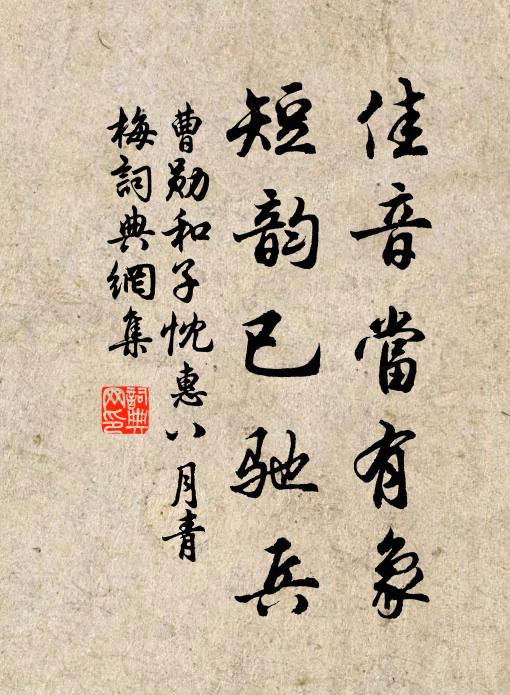 佳音當有象
短韵已馳兵
曹勛和子忱惠八月青
梅詞典網集
詞典
网印